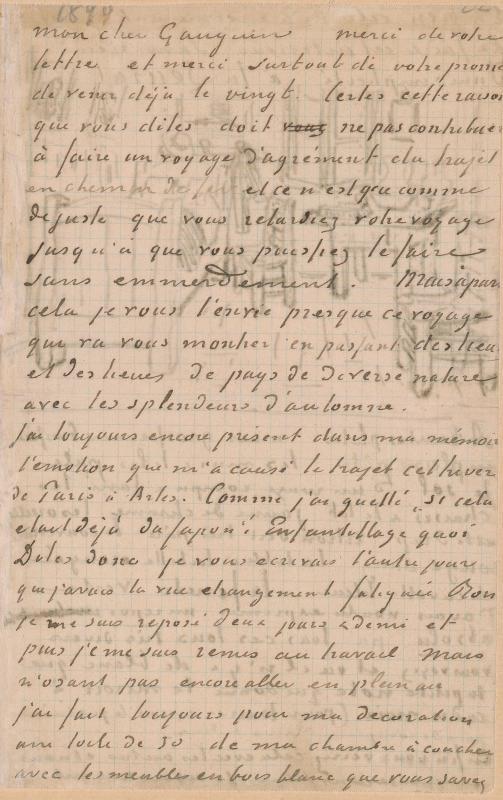 mon cher Gauguin merci de votre
lettre et merci surtout de votre prome
de venir déjà le vingt. Certes cette raison
que vous dites doit vous ne pas contribuer
à faire un voyage d'agrément du trajet
en chemin de fer et ce n'est que comme
de juste que vous retardiez votre voyage
jusqu'à que vous puissiez le faire
sans emmerdement. Mais à part
cela je vous l'envie presque ce voyage
qui va vous montrer en passant des lieu
et des lieues de pays de diverse nature
avec les splendeurs d'automne.
j'ai toujours encore présent dans ma mémoir
l'émotion que m'a causé le trajet cet hiver
de Paris à Arles. Comme j'ai guetté „si cela
etait déjà du Japon"! Enfantillage quoi
Dites donc je vous ecrivais l'autre jour
que j'avais la vue etrangement fatiguée. Bon
je me suis reposé deux jours & demi et
puis je me suis remis au travail mais
n'osant pas encore aller en plein air
j'ai fait toujours pour ma decoration
une toile de 30 de ma chambre à coucher
avec les meubles en bois blanc que vous savez